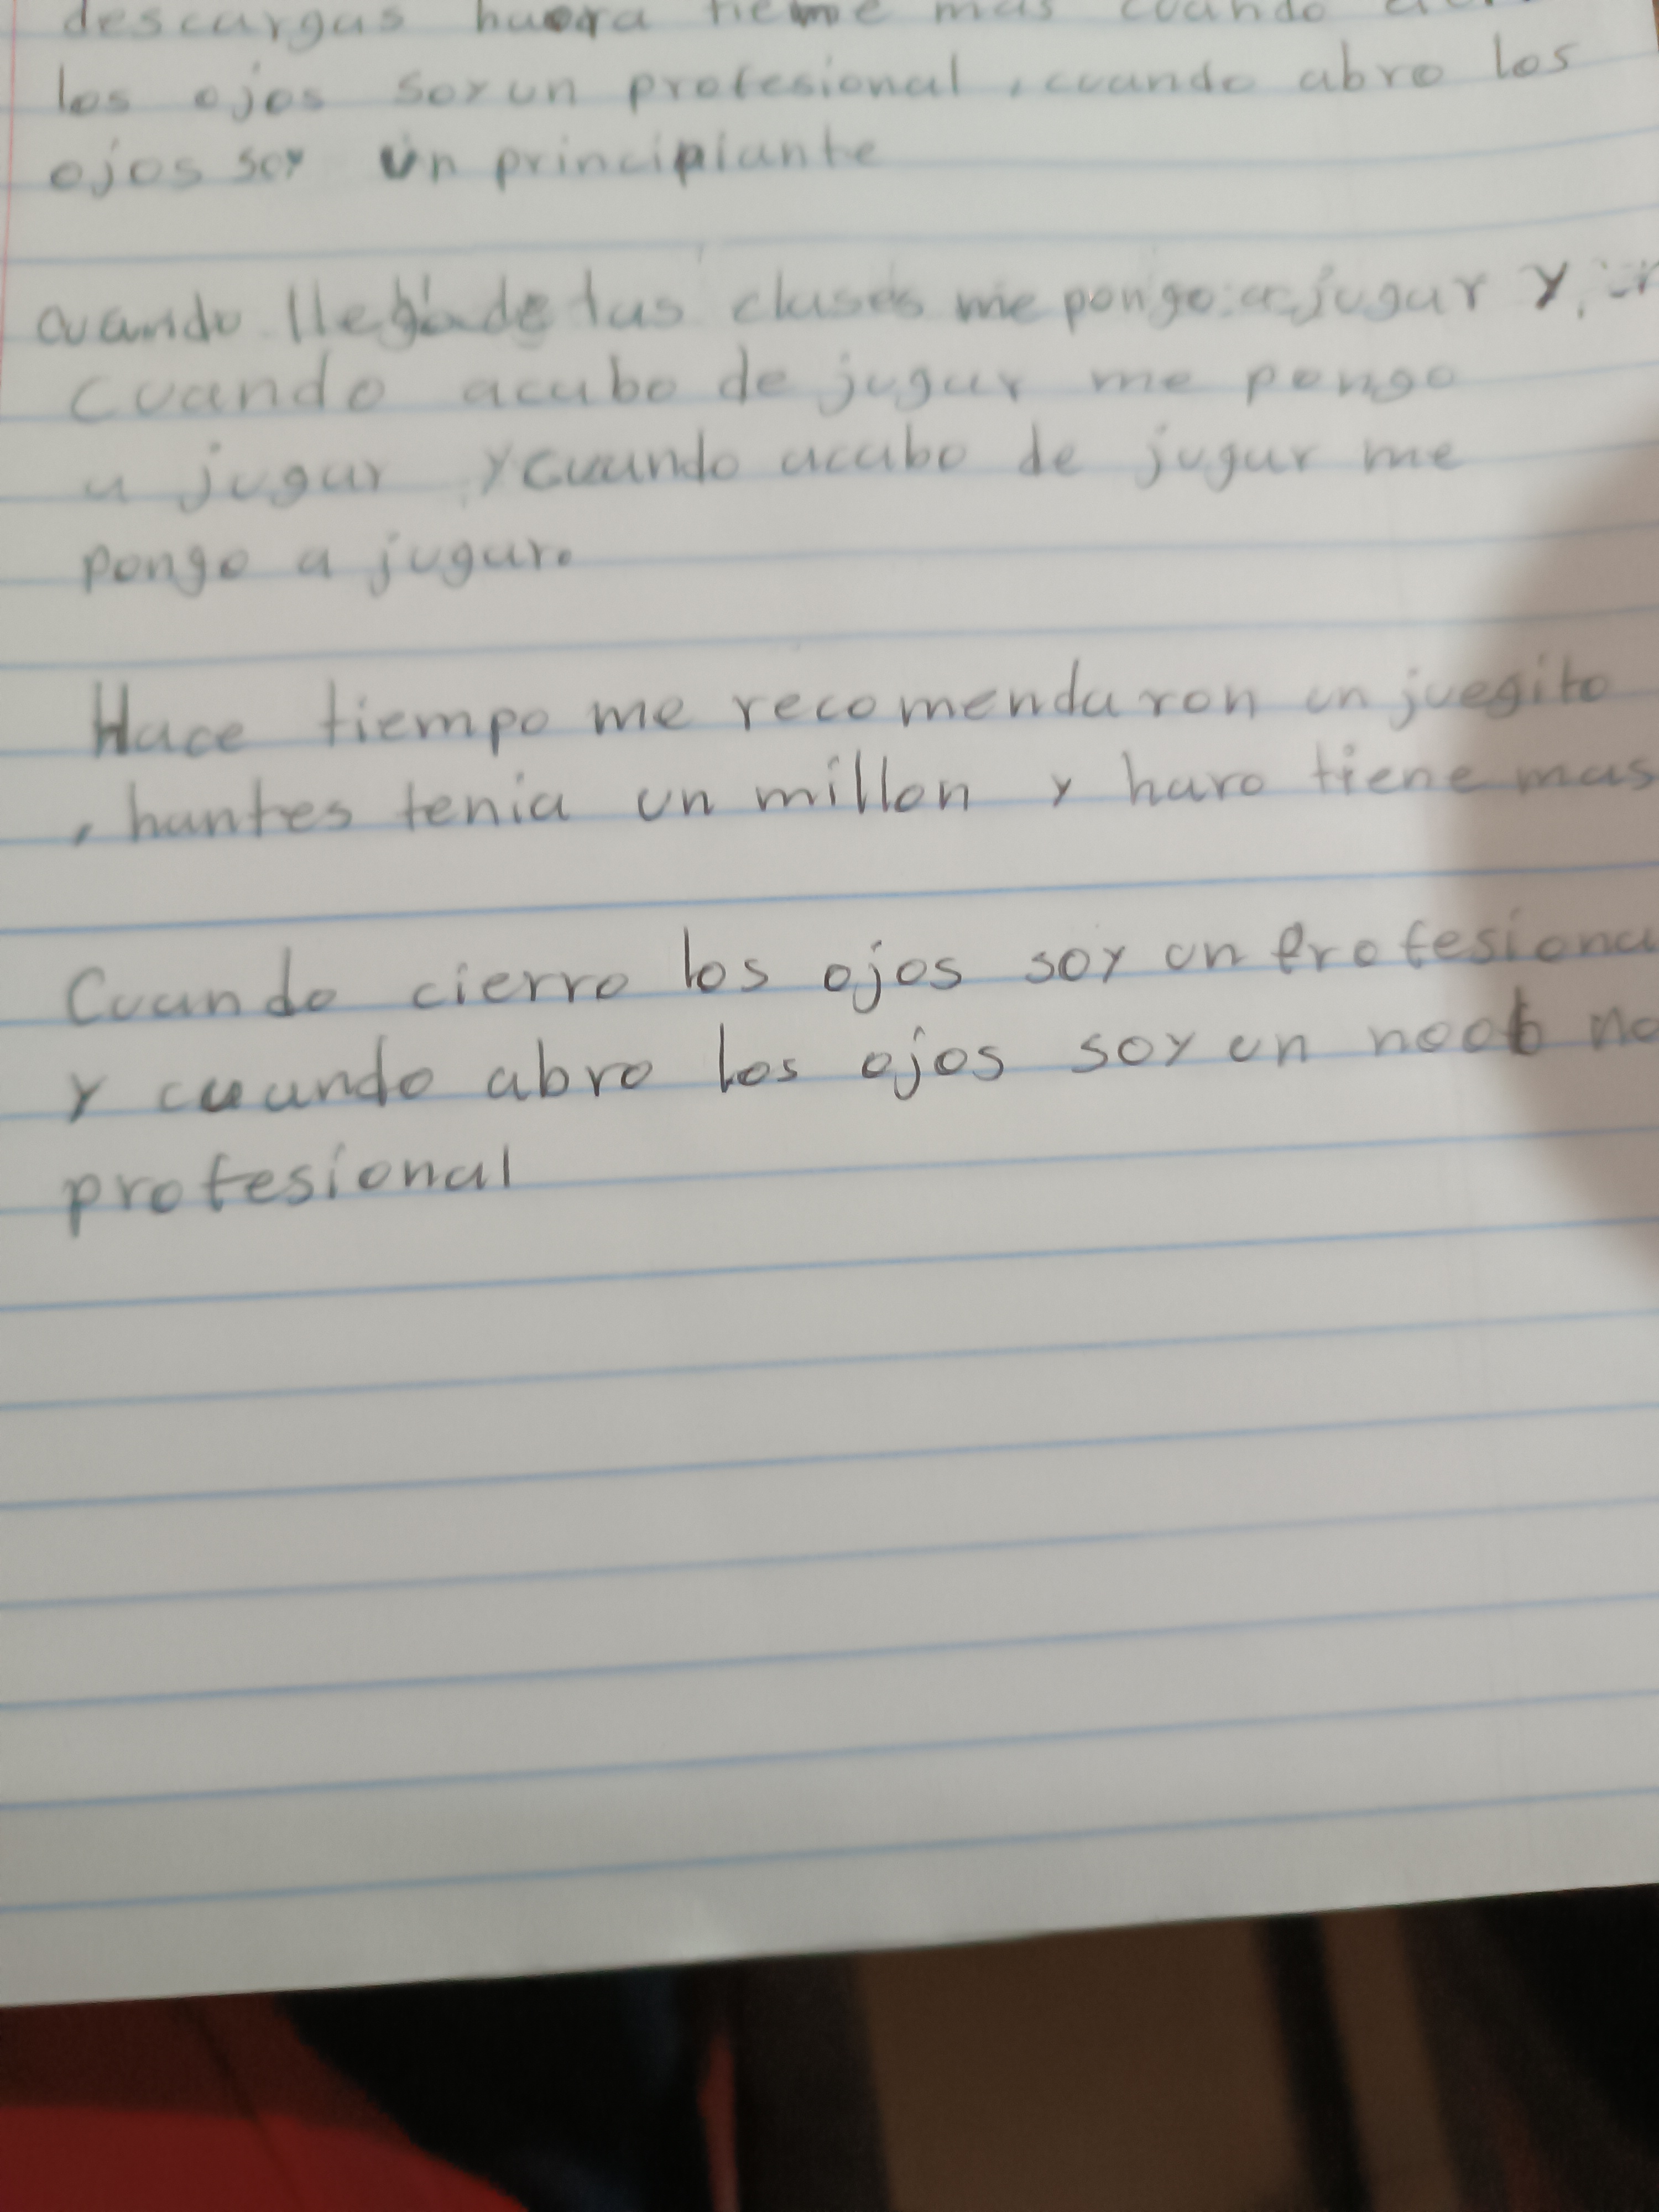 descargas huora tieme mas cuando
los ojos soy un profesional, cuando abro los
ojos soy un principiante
cuando llego de las clases me pongo a jugar y,
cuando acabo de jugar me pongo
a jugar y cuando acabo de jugar me
pongo a jugar.
Hace tiempo me recomendaron un juegito
, hantes tenia un millon y haro tiene mas
Cuando cierro los ojos soy un Profesiona
y cuando abro los ojos soy un noob no
profesional